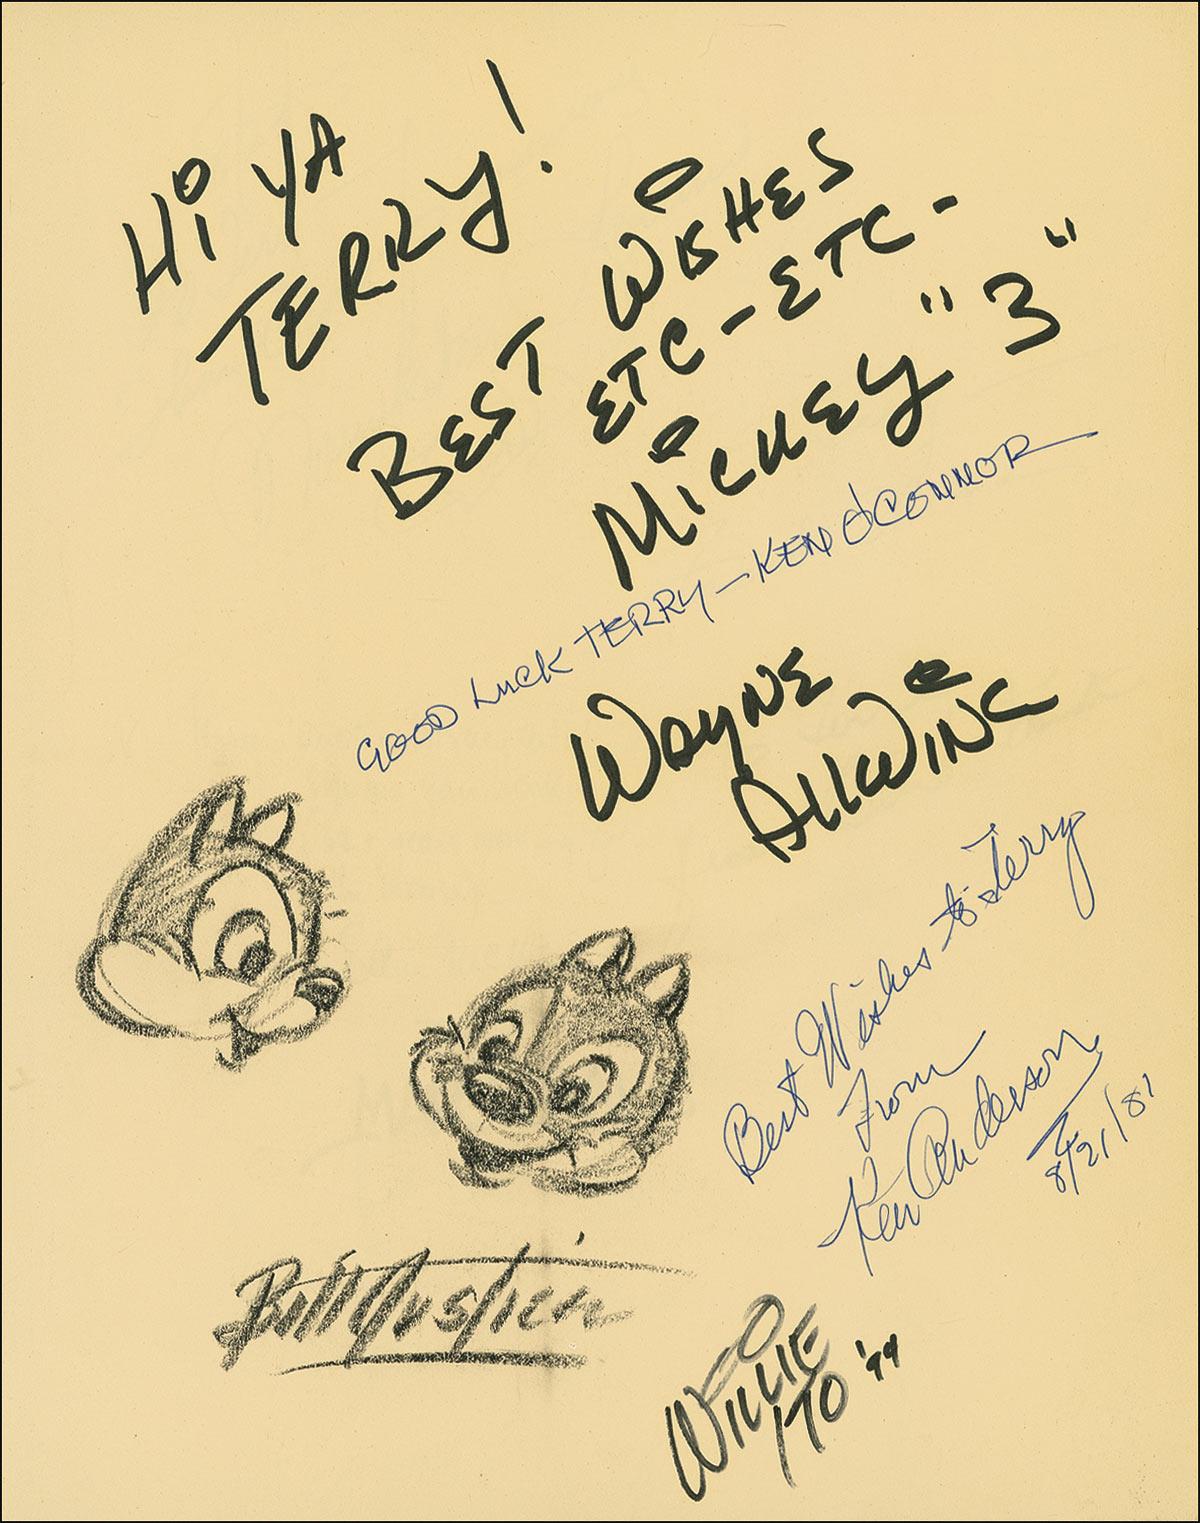 Hi YA
TERRY!
BEST WISHES
ETC - ETC -
MICKEY "3"
GOOD LUCK TERRY — KEN O'CONNOR
WAYNE
ALLWINE
Best Wishes to Terry
From
Ken Anderson
8/21/81
Bill Justice
WILLIE
ITO '99